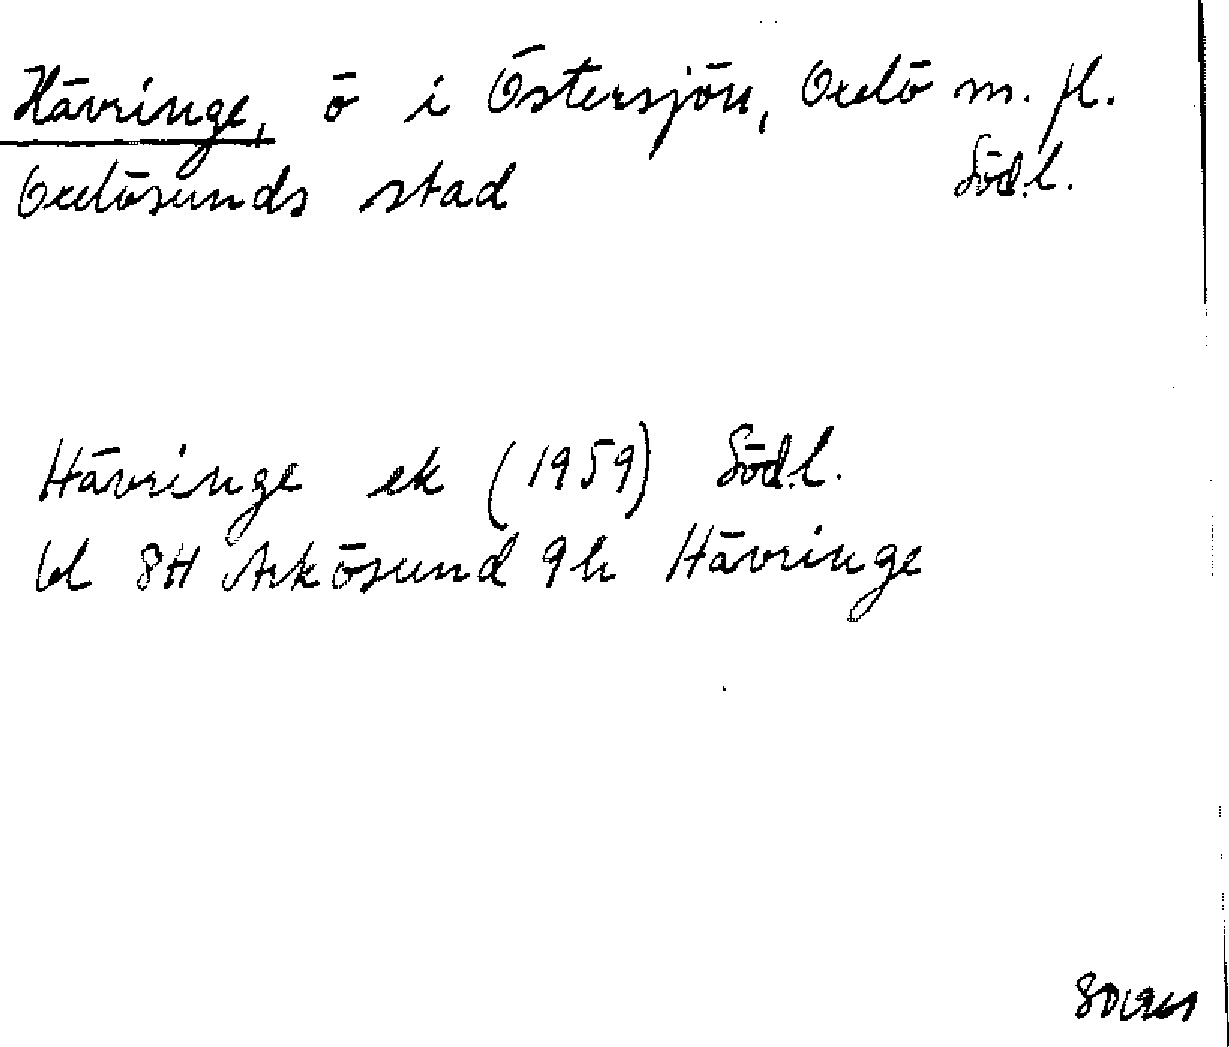 Hävringe, ö i Östersjön, Oxelö m. fl.
Oxelösunds stad Södl.
Hävringe ek (1959) Södl.
bl 8H Arkösund 9h Hävringe